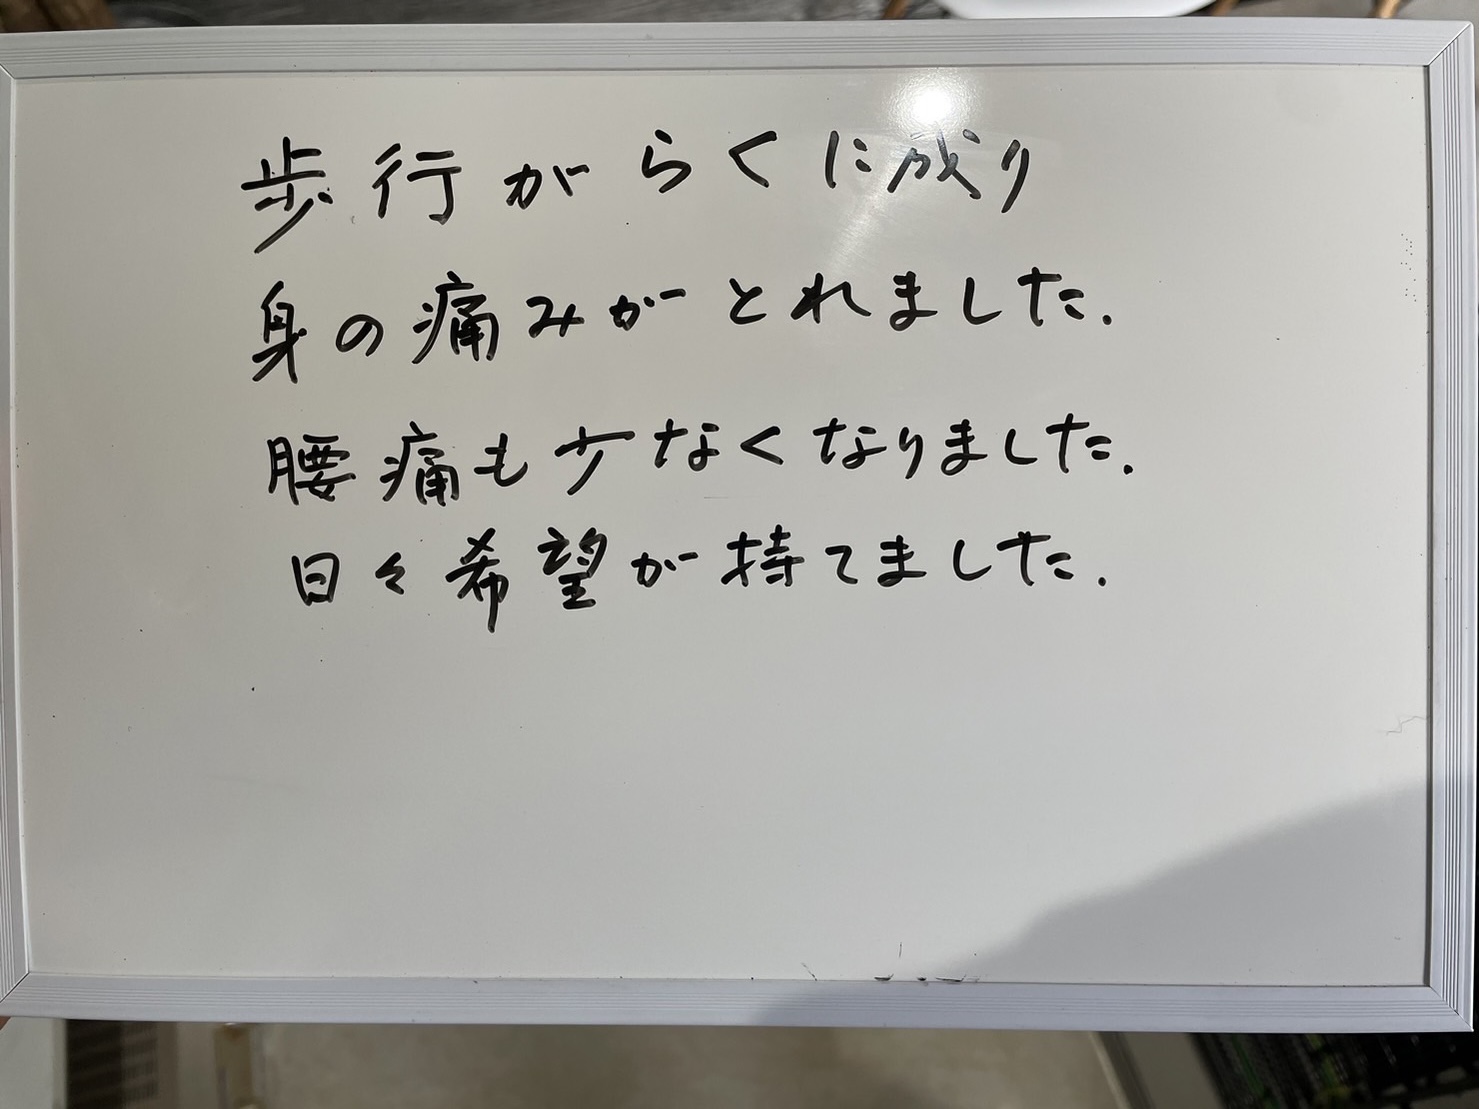 歩行がらくに成り
身の痛みがとれました.
腰痛も少なくなりました.
日々希望が持てました.